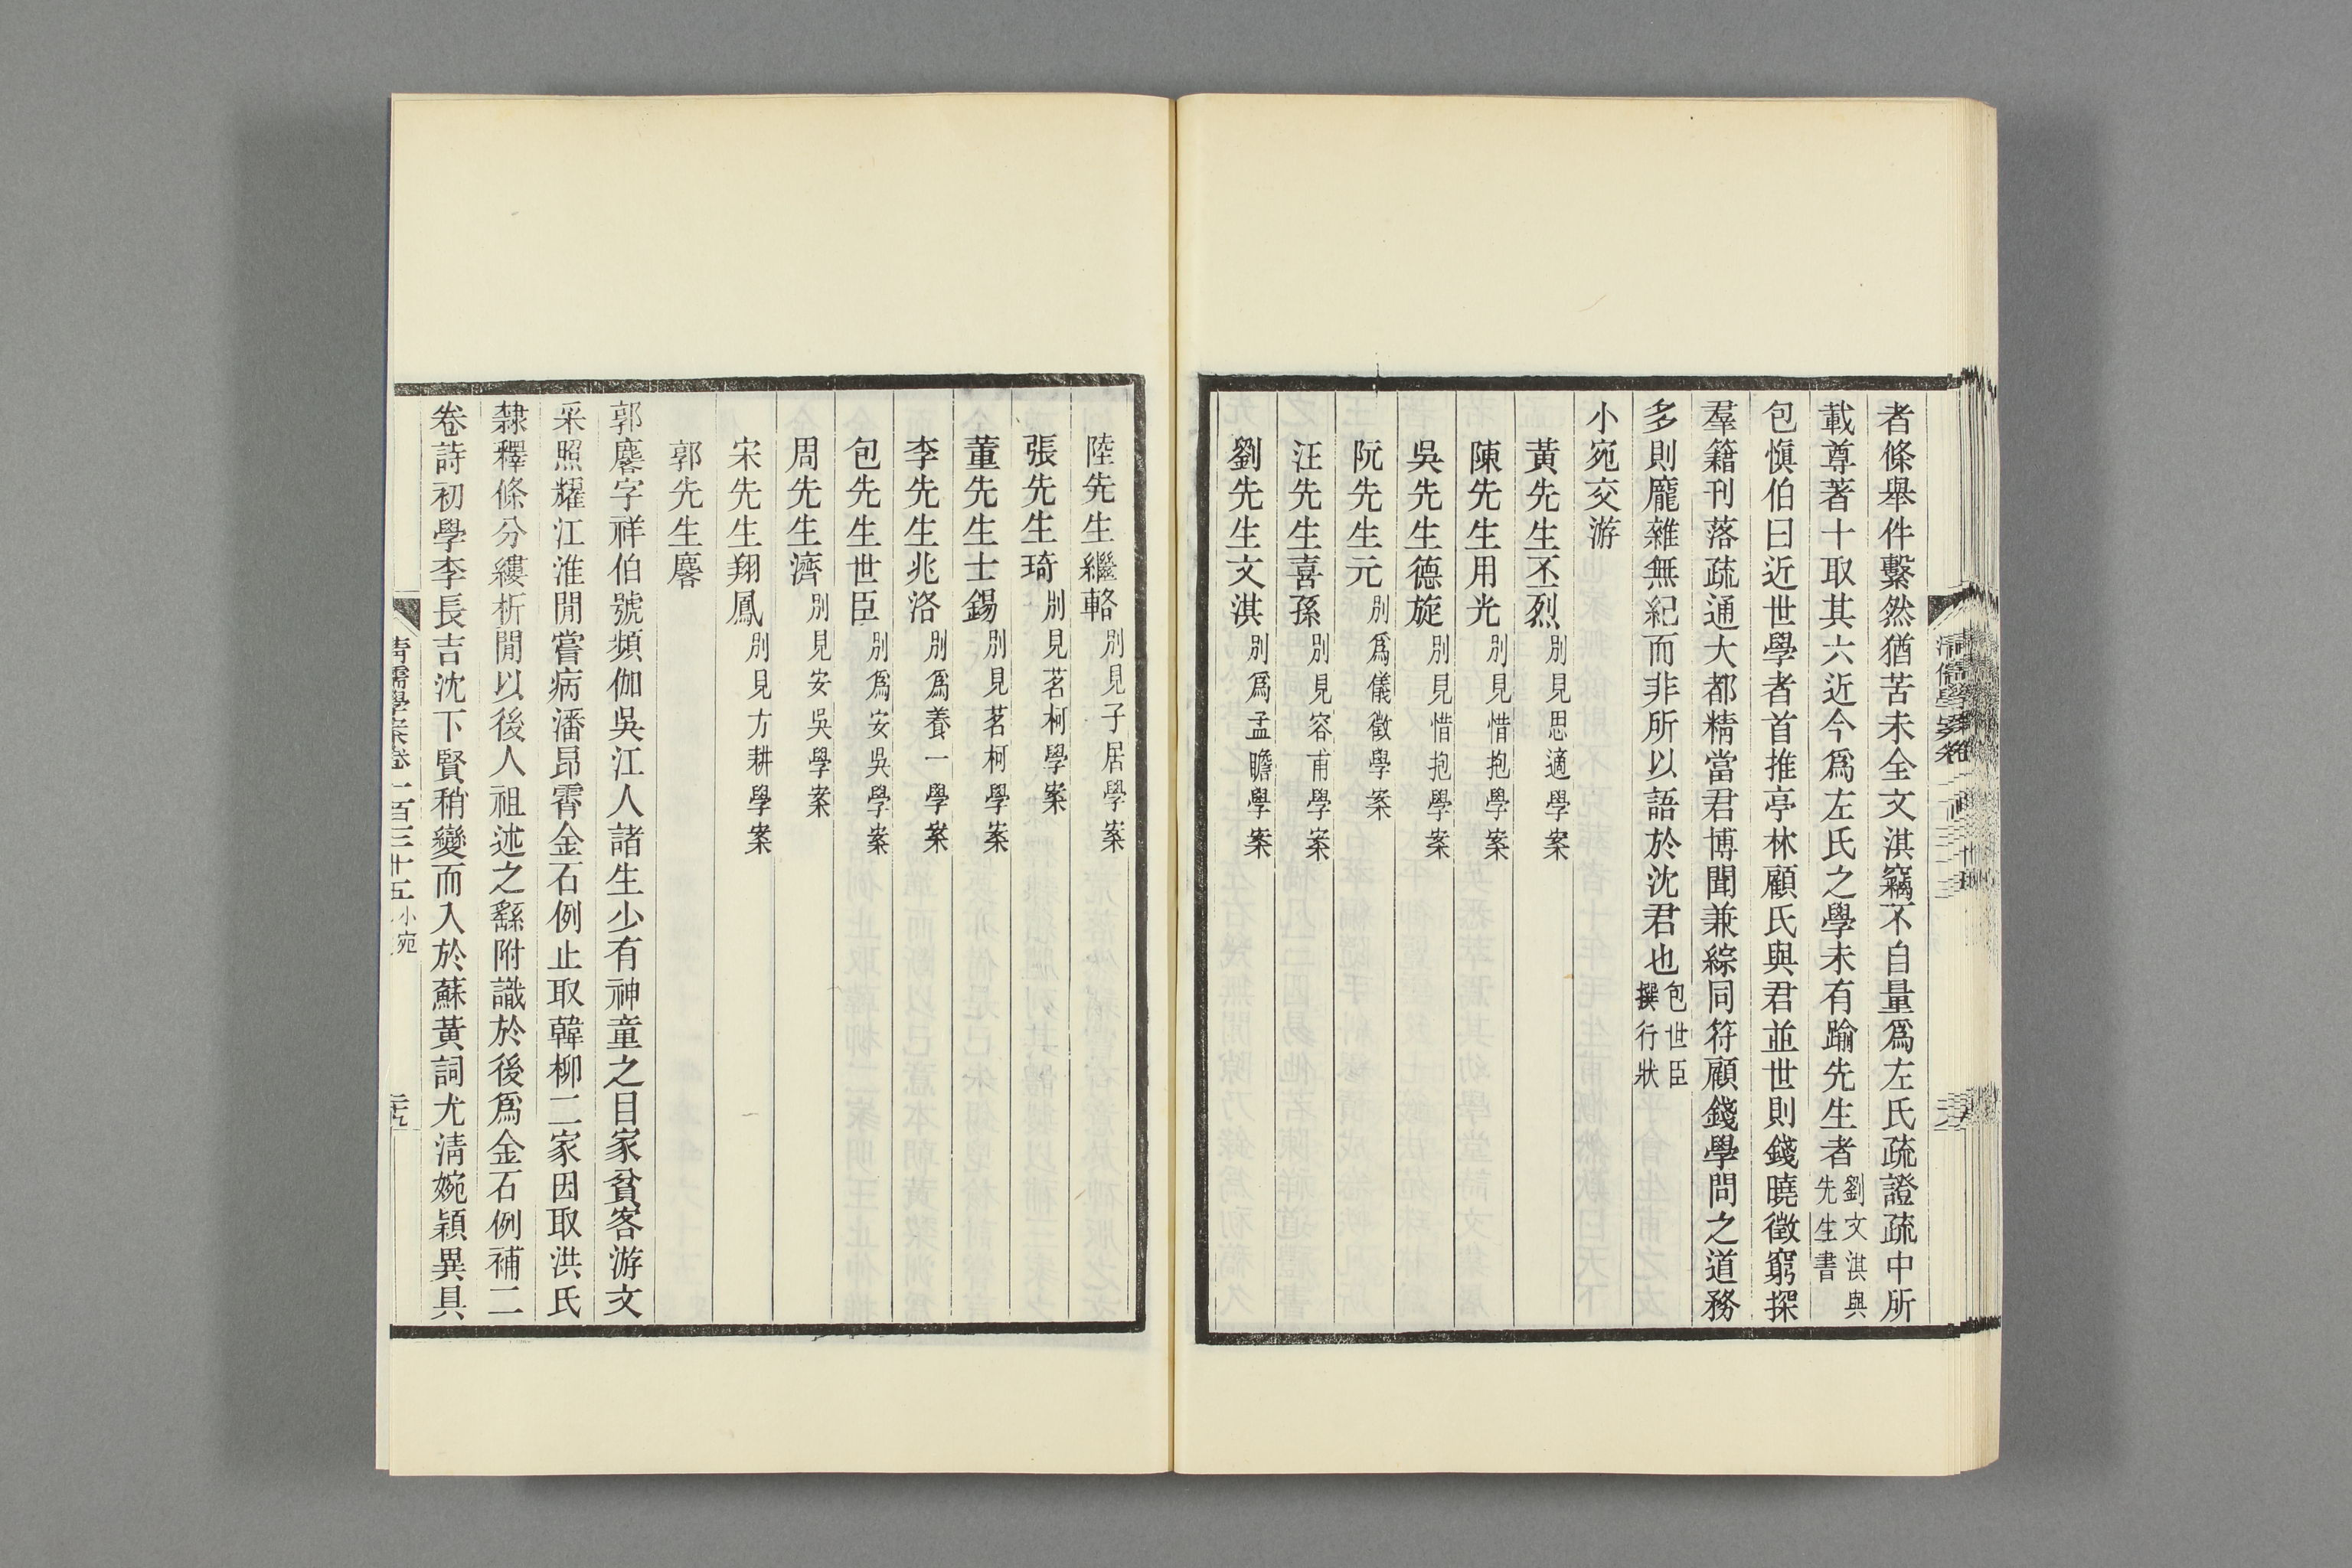 者條舉件繫然猶苦未全文淇竊不自量爲左氏疏證疏中所
載尊著十取其六近今爲左氏之學未有踰先生者劉文淇與先生書
包愼伯曰近世學者首推亭林顧氏與君並世則錢曉徵窮探
羣籍刊落疏通大都精當君博聞兼綜同符顧錢學問之道務
多則龐雜無紀而非所以語於沈君也包世臣撰行狀
小宛交游
黃先生丕烈別見思適學案
陳先生用光別見惜抱學案
吳先生德旋別見惜抱學案
阮先生元別爲儀徵學案
汪先生喜孫別見容甫學案
劉先生文淇別爲孟瞻學案
陸先生繼輅別見子居學案
張先生琦別見茗柯學案
董先生士錫別見茗柯學案
李先生兆洛別爲養一學案
包先生世臣別爲安吳學案
周先生濟別見安吳學案
宋先生翔鳳別見方耕學案
郭先生麐
郭麐字祥伯號頻伽吳江人諸生少有神童之目家貧客游文
采照耀江淮閒嘗病潘昂霄金石例止取韓柳二家因取洪氏
隸釋條分縷析閒以後人祖述之繇附識於後爲金石例補二
卷詩初學李長吉沈下賢稍變而入於蘇黃詞尤淸婉穎異具
清儒學案卷一百三十五 小宛